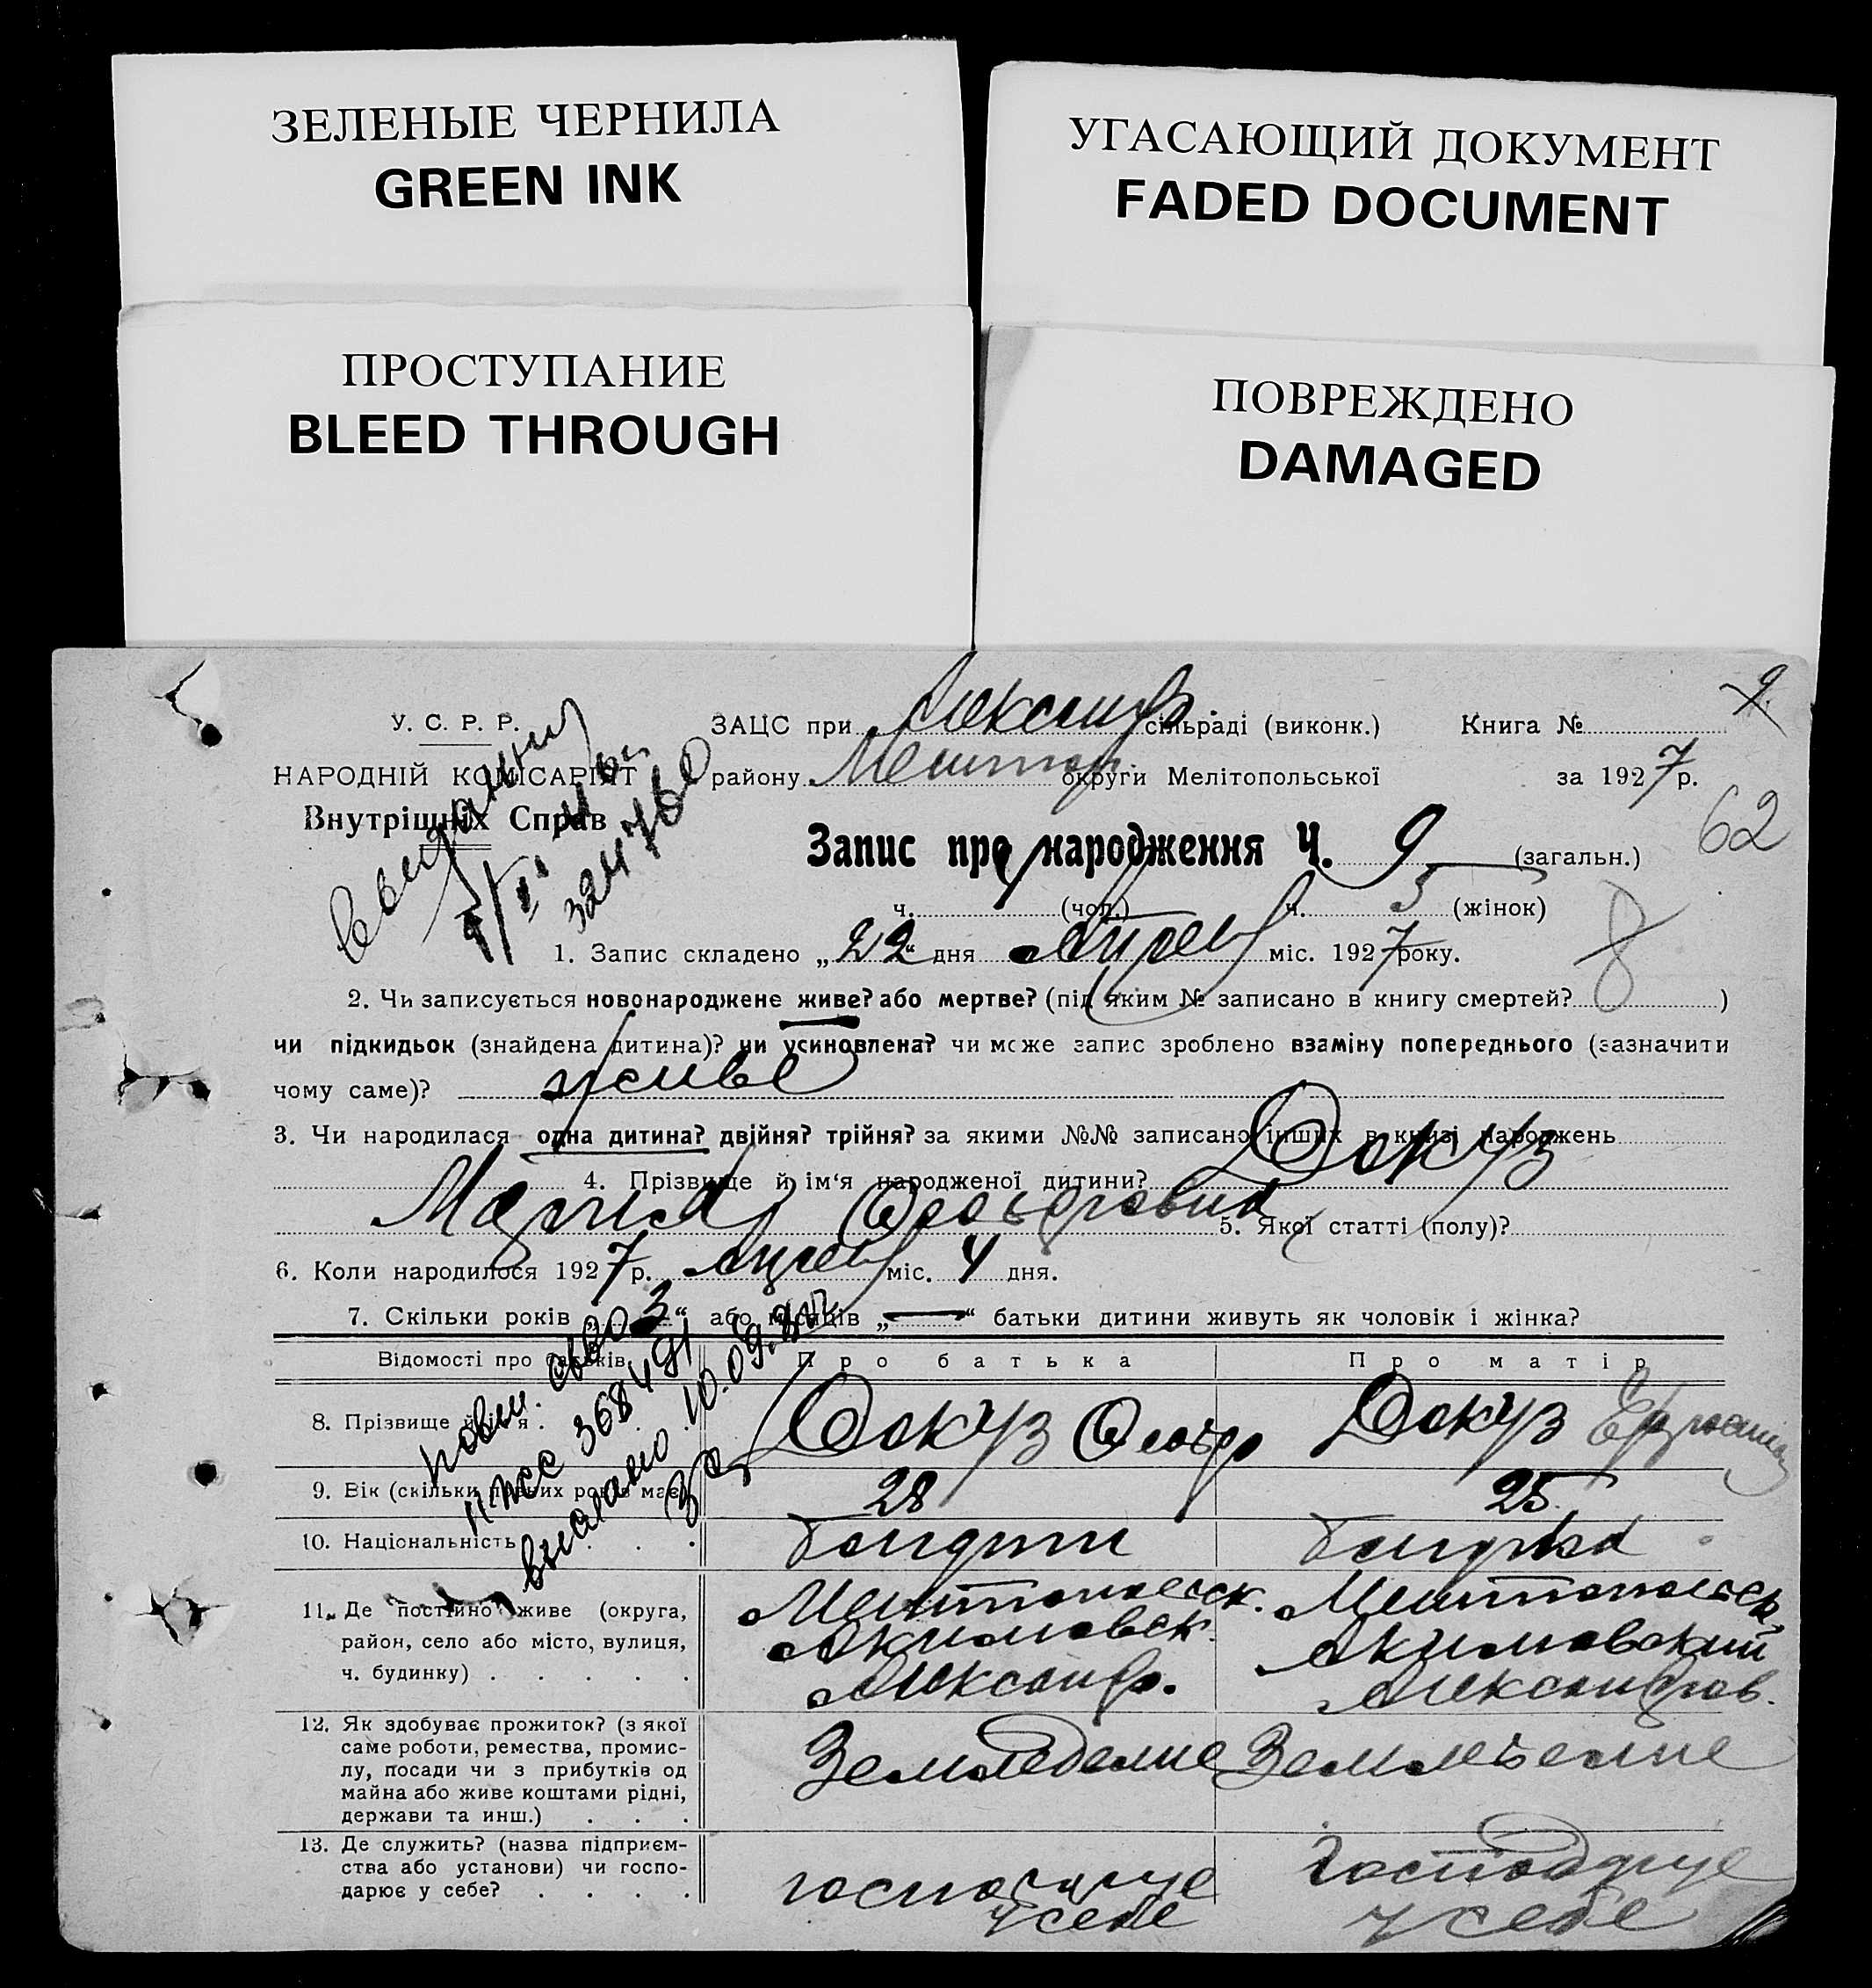 ЗЕЛЕНЫЕ ЧЕРНИЛА
GREEN INK
УГАСАЮЩИЙ ДОКУМЕНТ
FADED DOCUMENT
ПРОСТУПАНИЕ
BLEED THROUGH
ПОВРЕЖДЕНО
DAMAGED
У. С. Р. Р.
НАРОДНІЙ КОМІСАРІЯТ
Внутрішніх Справ
ЗАЦС при Александр. сільраді (виконк.) Книга №
району округи Мелітопольської за 1927 р.
62
Запис про народження Ч. 9 (загальн.)
ч. (чол.) ч. 5 (жінок)
8
1. Запис складено „22“ дня міс. 1927 року.
2. Чи записується новонароджене живе? або мертве? (під яким № записано в книгу смертей? )
чи підкидьок (знайдена дитина)? чи усиновлена? чи може запис зроблено взаміну попереднього (зазначити
чому саме)? живе
3. Чи народилася одна дитина? двійня? трійня? за якими №№ записано інших в книзі народжень
4. Прізвище й ім‘я народженої дитини? Докуз
Мария 5. Якої статті (полу)?
6. Коли народилося 1927 р. міс. 4 дня.
7. Скільки років „3“ або місяців „—“ батьки дитини живуть як чоловік і жінка?
Відомості про батьків Про батька Про матір
8. Прізвище й ім‘я . Докуз Докуз
9. Вік (скільки повних років має) 28 25
10. Національність
11. Де постійно живе (округа,
район, село або місто, вулиця,
ч. будинку) . . . . .
Мелитопольск. Мелитопольск.
Акимовск. Акимовский
Александр. Александров.
12. Як здобуває прожиток? (з якої
саме роботи, ремества, промис-
лу, посади чи з прибутків од
майна або живе коштами рідні,
держави та инш.) . . .
Земледелие
13. Де служить? (назва підприєм-
ства або установи) чи госпо-
дарює у себе? . . . .
у себе у себе